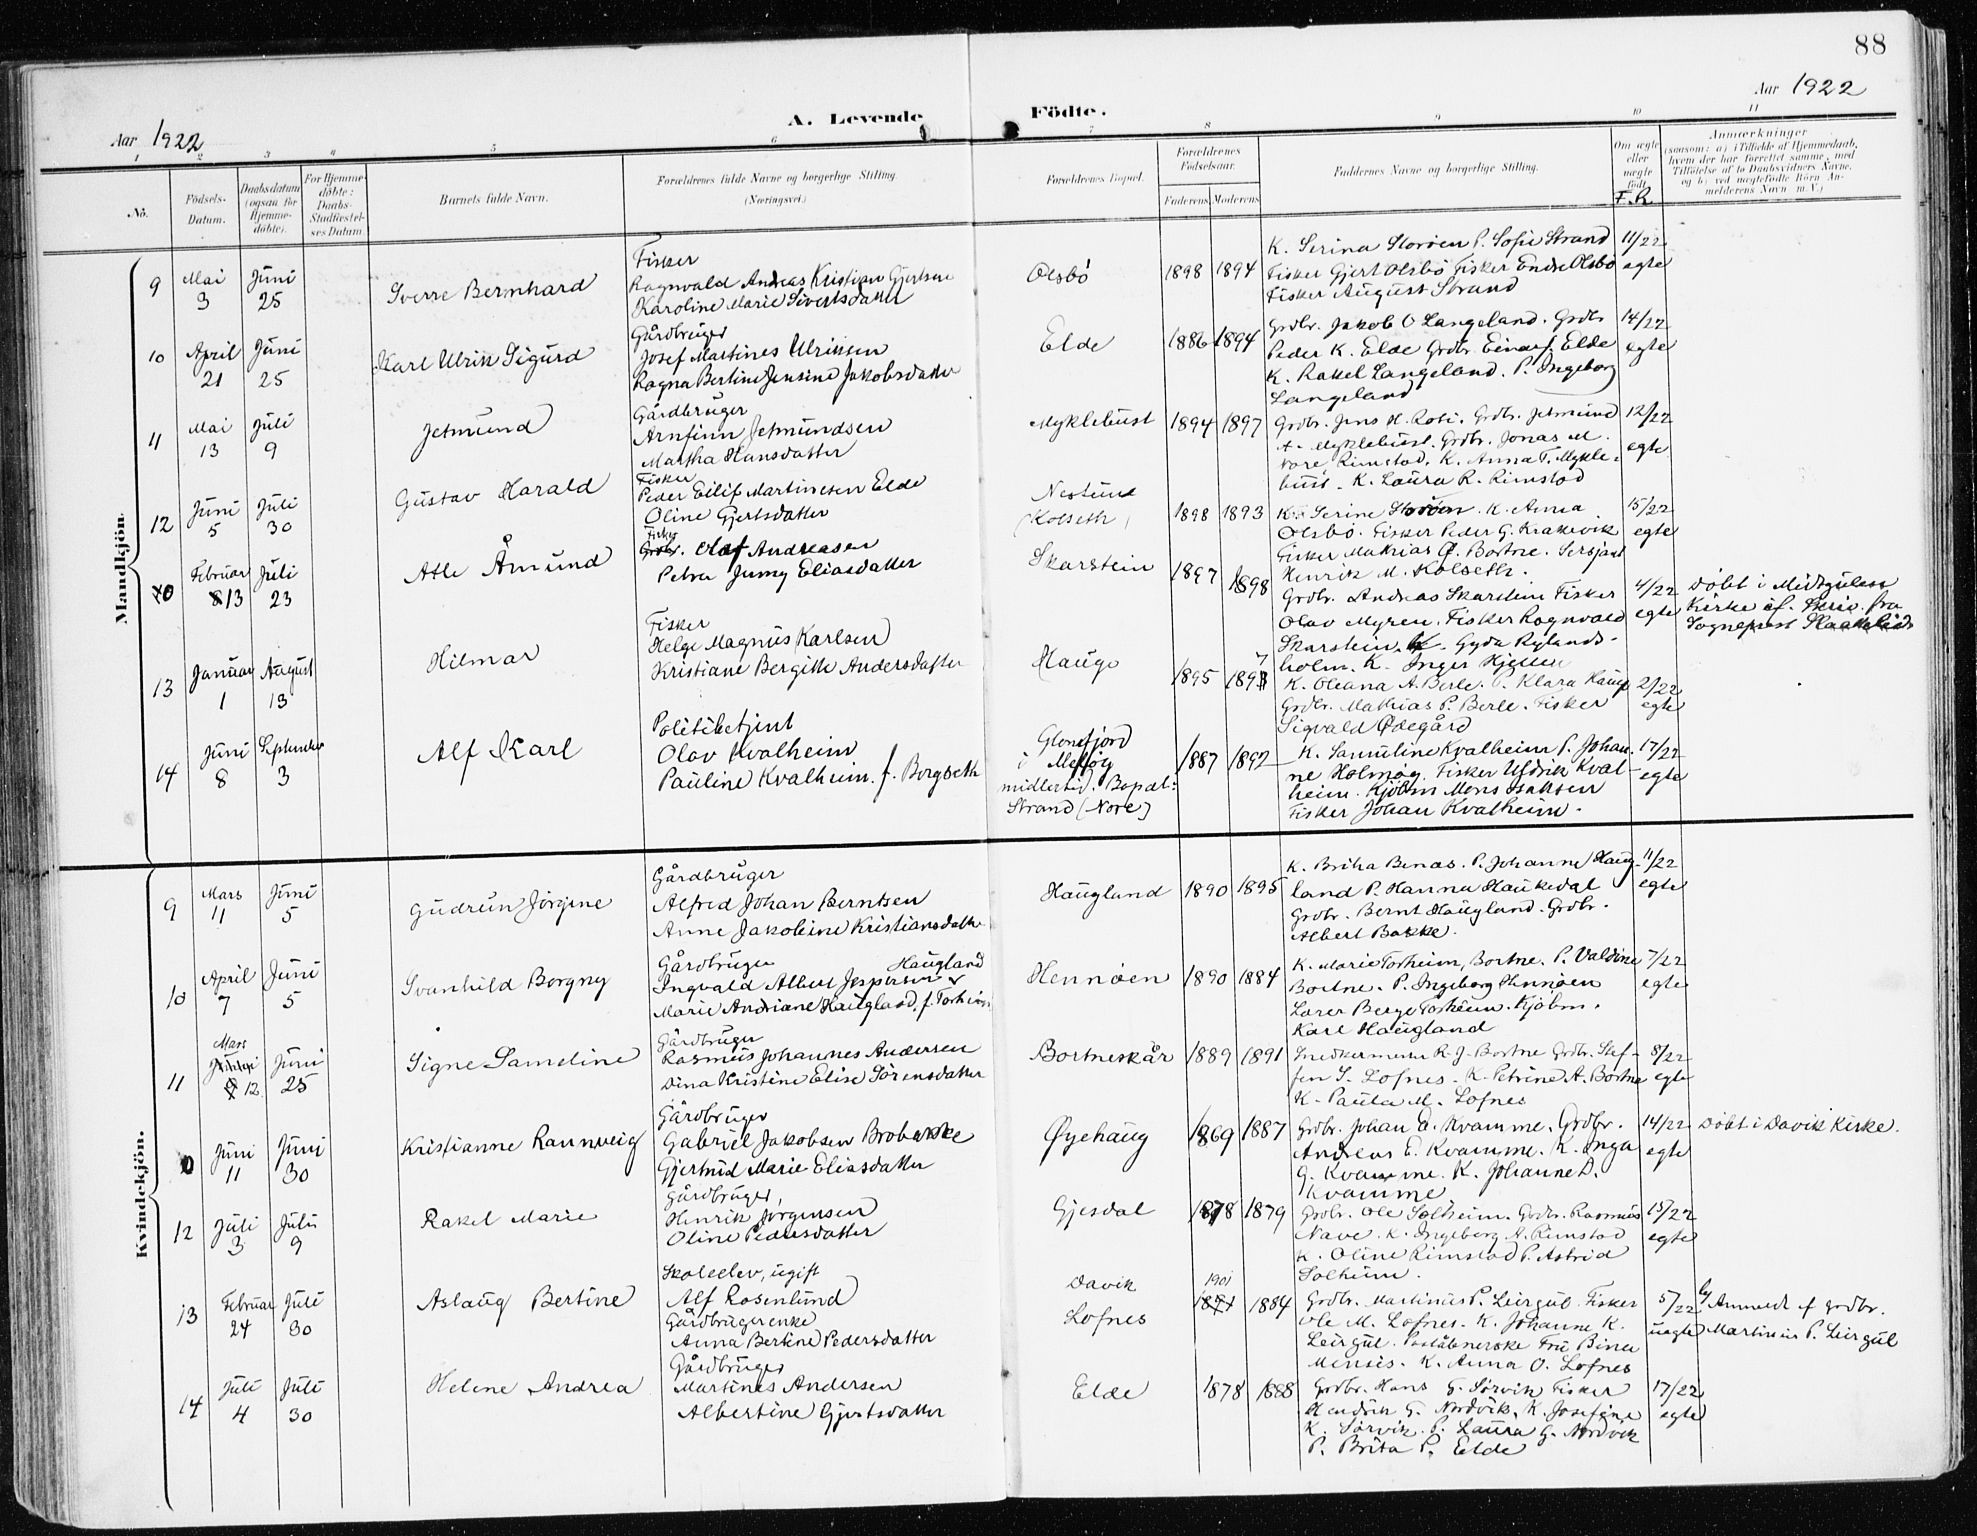 88
Aar 1922
A. Levende Födte.
Aar 1922
1 2 3 4 5 6 7 8 9 10 11
No.
Födsels-Datum.
Daabsdatum (ogsaa for Hjemmedöbte).
For Hjemmedöbte: Daabs-Stadfæstelses Datum.
Barnets fulde Navn.
Forældrenes fulde Navne og borgerlige Stilling. (Næringsvei.)
Forældrenes Bopæl.
Forældrenes Födselsaar.
Faderens Moderens
Faddernes Navne og borgerlige Stilling.
Om ægte eller uægte född.
F.R.
Anmærkninger
(saasom: a) i Tilfælde af Hjemmedaab, hvem der har forrettet samme, med Tilföielse af to Daabsvidners Navne, og b) ved uægtefödte Börn Anmelderens Navn m.V.)
Mandkjön.
9 Mai 3 Juni 25 Sverre Bernhard
Fisker
Ragnvald Andreas Kristian Gjertsen
Karoline Marie Sivertsdatter
Olsbö 1898 1894
K. Serina Storöen P. Sofie Strand
Fisker Gjert Olsbö Fisker Endre Olsbö
Fisker August Strand
11/22 egte
10 April 21 Juni 25 Karl Ulrik Sigurd
Gårdbruger
Josef Martines Ulriksen
Ragna Bertine Jensine Jakobsdatter
Elde 1886 1894
Grdbr. Jakob O Langeland. Grdbr
Peder K. Elde Grdbr. Einar J. Elde
K. Rakel Langeland. P. Ingeborg
Langeland
14/22 egte
11 Mai 13 Juli 9 Jetmund
Gårdbruger
Arnfinn Jetmundsen
Martha Hansdatter
Myklebust 1894 1897
Grdbr. Jens H. Roti. Grdbr. Jetmund
A. Myklebust. Grdbr. Jonas M.
Nore Rimstad. K. Anna T. Mykle-
bust. K. Laura R. Rimstad
12/22 egte
12 Juni 5 Juli 30 Gustav Harald
Fisker
Peder Eilif Martinesen Elde
Oline Gjertsdatter
(Kolseth) 1898 1893
K. Serine Storöen. K. Anna
Olsbö. Fisker Peder G. Krakevik
Fisker Mathias Ø. Bortne. Sersjant
Henrik M. Kolseth.
15/22 egte
0 Februar 13 Juli 23 Atle Åmund
Fisker
Grdbr. Olaf Andreasen
Petra Jenny Eliasdatter
Skarstein 1897 1898
Grdbr. Andreas Skarstein Fisker
Olav Myren. Fisker Ragnvald
Skarstein. K. Gyda Rylands-
holm. K. Inger Hjellen
4/22 egte
Döbt i Midtgulen
Kirke
Sogneprest
13 Januar 1 August 13 Hilmar
Fisker
Helge Magnus Karlsen
Kristiane Bergitte Andersdatter
Hauge 1895 1897
K. Oleana A. Berle. P. Klara Kamp
Grdbr. Mathias P. Berle. Fisker
Sigvald Ødegård
2/22 egte
14 Juni 8 September 3 Alf Karl
Politibetjent
Olav Kvalheim
Pauline Kvalheim. f. Borgseth
Glomfjord
i Meløy
midlertid. Bopæl:
Strand (Nore)
1887 1892
K. Samuline Kvalheim P. Johan-
ne Holmöy. Fisker Uldrik Kval-
heim. Kjöbm Mons Isaksen
Fisker Johan Kvalheim.
17/22 egte
Kvindekjön.
9 Mars 11 Juni 5 Gudrun Jörgine
Gårdbruger
Alfred Johan Berntsen
Anne Jakobine Kristiansdatter
Haugland 1890 1895
K. Britha Benas. P. Johanne Haug-
land P. Hanna Haukedal
Grdbr. Bernt Haugland. Grdbr.
Albert Bakke.
11/22 egte
10 April 7 Juni 5 Svanhild Borgny
Gårdbruger
Ingvald Albert Jespersen Haugland
Marie Andriane Haugland. f. Torheim
Hennöen 1890 1884
K. Marie Torheim, Bortne. P. Valdine
Bortne. P. Ingeborg Hennöen
Lærer Berge Torheim. Kjöbm.
Karl Haugland
7/22 egte
11 Mars 12 Juni 25 Signe Sameline
Gårdbruger
Rasmus Johannes Andersen
Dina Kristine Elise Sörensdatter
Bortneskår 1889 1891
Snedkermester R. J. Bortne Grdbr. Stef-
fen S. Lofnes. K. Petrine A. Bortne
K. Paula M. Lofnes
8/22 egte
0 Juni 11 Juni 30 Kristianne Rannveig
Gårdbruger
Gabriel Jakobsen Brobakke
Gjertrud Marie Eliasdatter
Øyehaug 1869 1887
Grdbr. Johan E. Kvamme. Grdbr.
Andreas E. Kvamme. K. Inga
G. Kvamme. K. Johanne D.
Kvamme
14/22 egte
Döbt i Davik Kirke.
12 Juli 3 Juli 9 Rakel Marie
Gårdbruger,
Henrik Jörgensen
Oline Pedersdatter
Gjesdal 1878 1879
Grdbr. Ole Solheim. Grdbr. Rasmus
Nave. K. Ingeborg A. Rimstad
K. Oline Rimstad P. Astrid
Solheim.
15/22 egte
13 Februar 24 Juli 30 Aslaug Bertine
Skoleelev, ugift
Alf Rosenlund
Gårdbrugerenke
Anna Bertine Pedersdatter
Davik
Lofnes 1901 1884
Grdbr. Martinus P. Leirgul. Fisker
Ole M. Lofnes. K. Johanne K.
Leirgul. Postabnerske Fru Bina
Mensis. K. Anna O. Lofnes
5/22 uegte
b) Anmeldt af grdbr.
Martinus P. Leirgul
14 Juli 4 Juli 30 Helene Andrea
Gårdbruger
Martines Andersen
Albertine Gjertsdatter
Elde 1878 1888
Grdbr. Hans G. Sörvik Fisker
Hendrik G. Nordvik. K. Josefine
K. Sörvik. P. Laura G. Nordvik
P. Brita P. Elde
17/22 egte